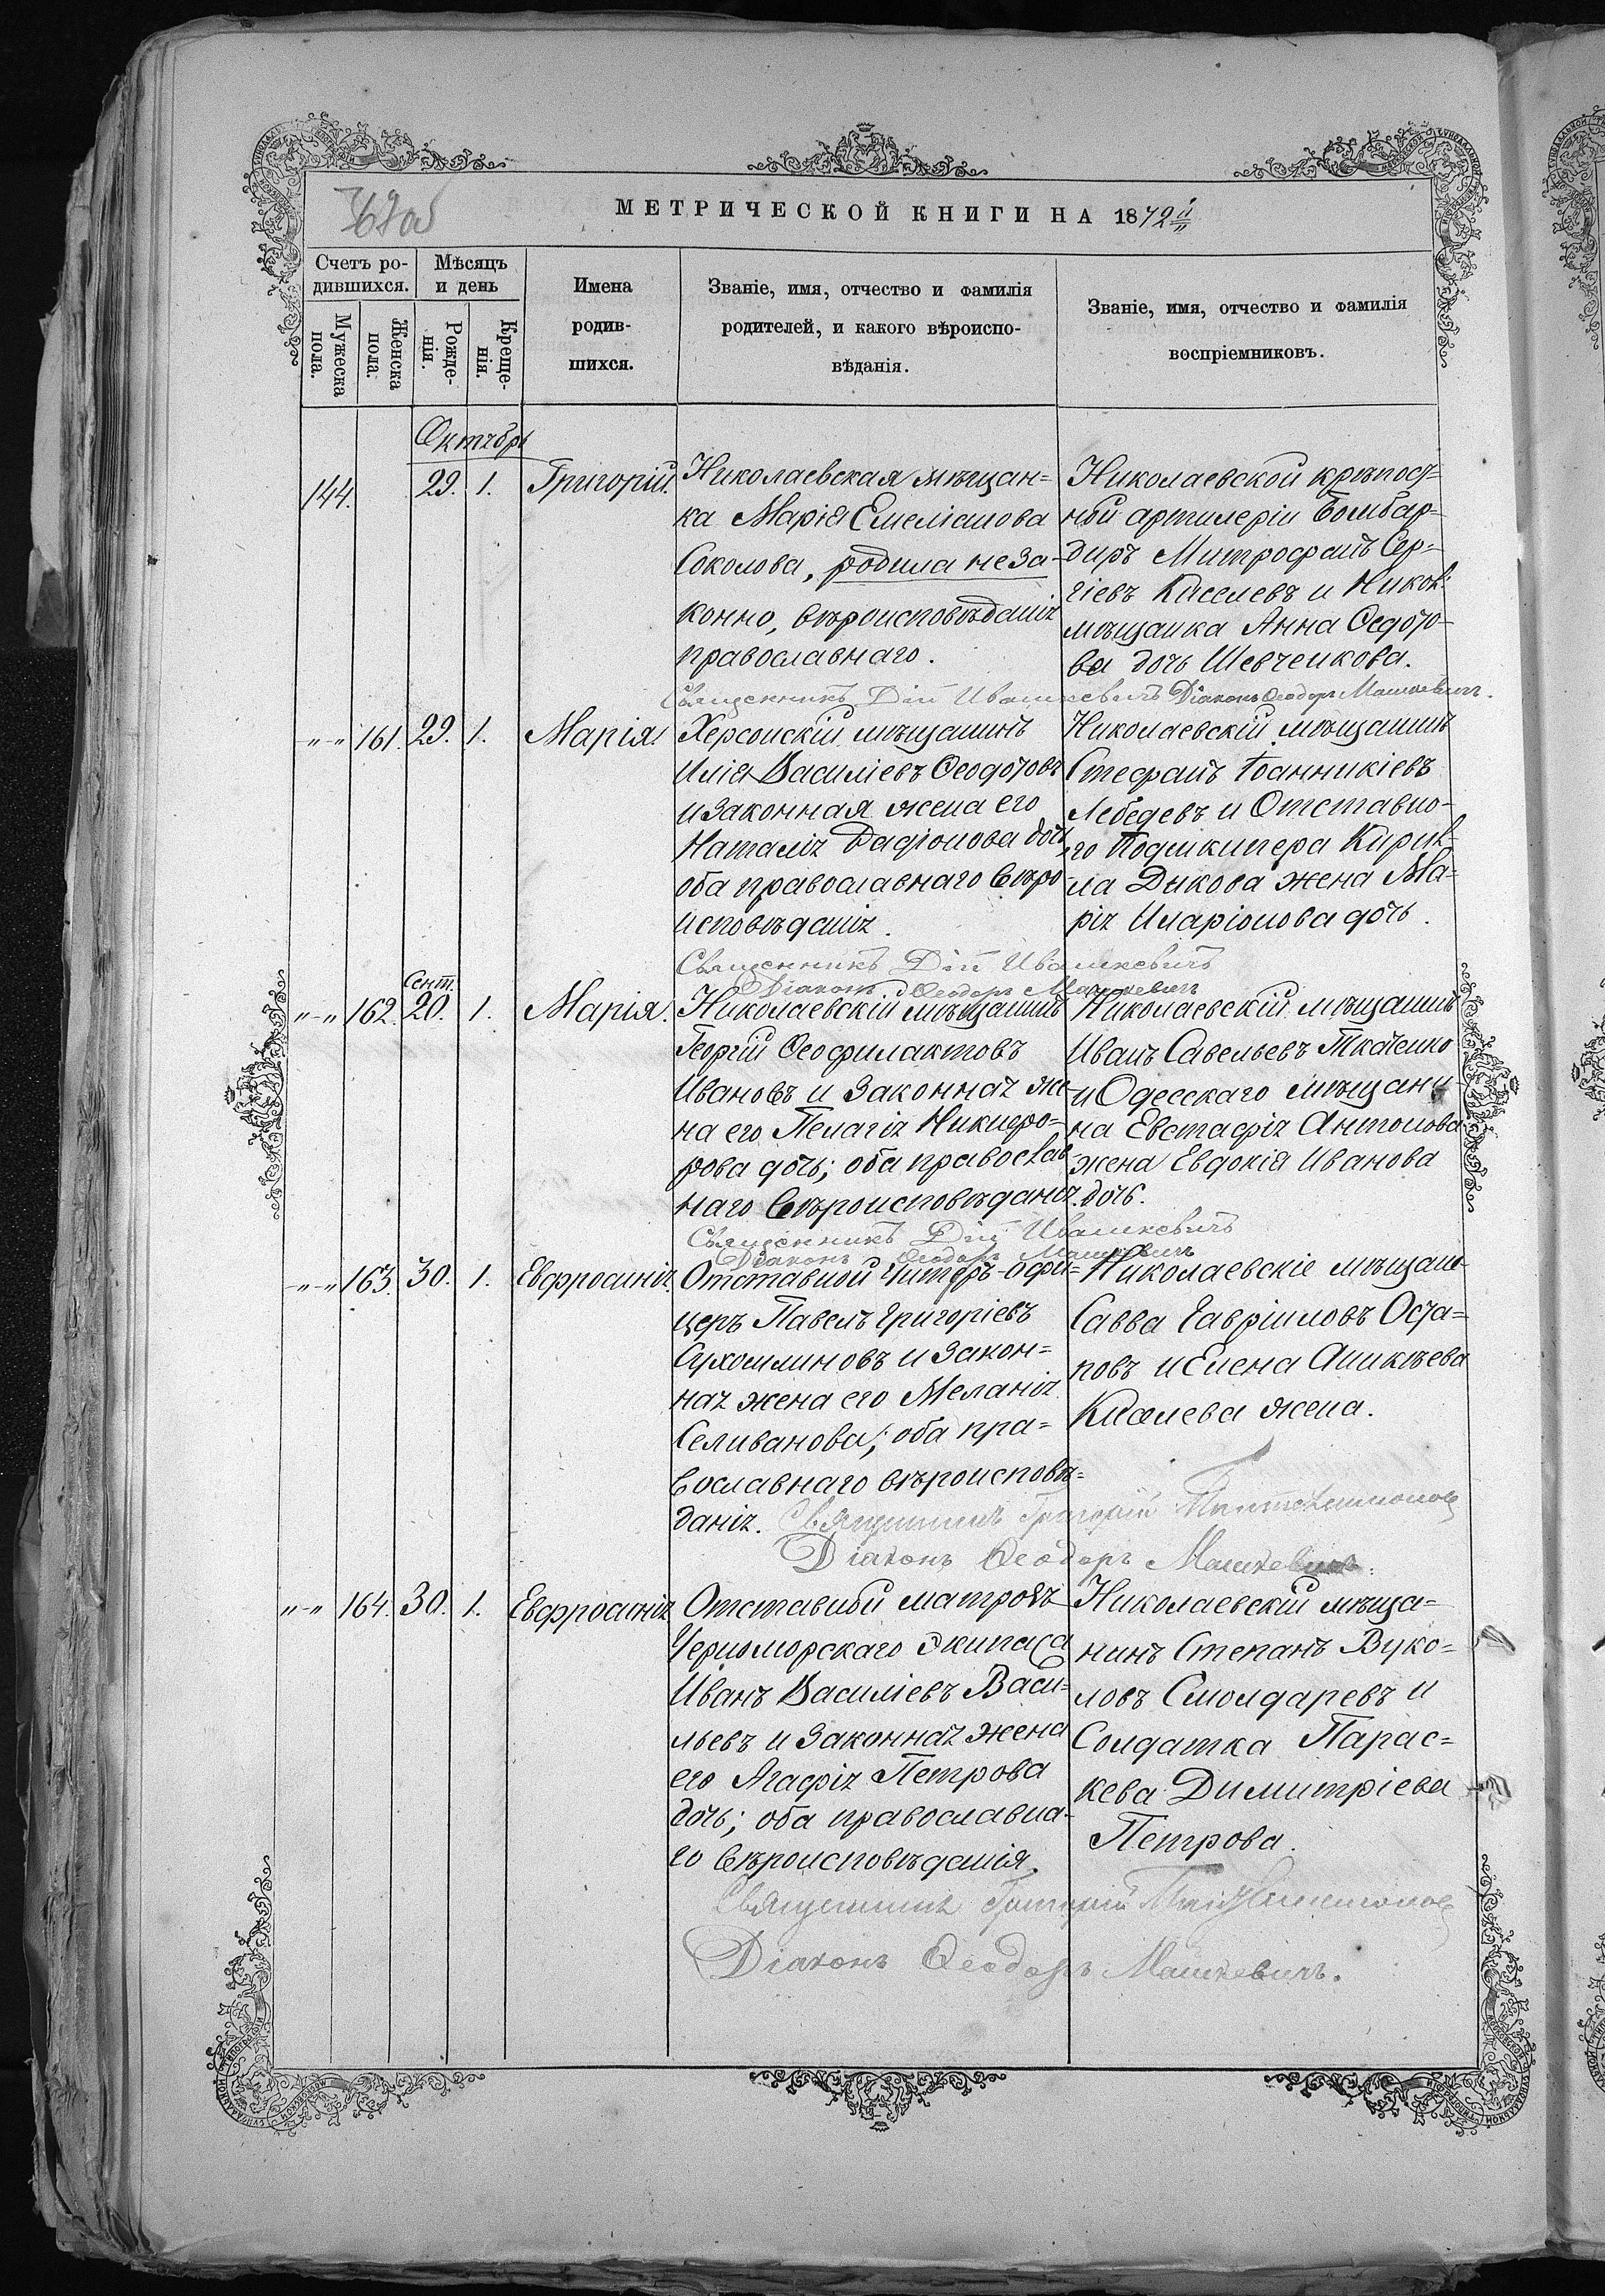 МЕТРИЧЕСКОЙ КНИГИ НА 1872й
Счетъ ро-
дившихся.
Мужеска
пола.
Женска
пола.
Мѣсяцъ
и день
Рожде-
нія.
Креще-
нія.
Имена
родив-
шихся.
Званіе, имя, отчество и фамилія
родителей, и какого вѣроиспо-
вѣданія.
Званіе, имя, отчество и фамилія
воспріемниковъ.
Октябрь
144. 29. 1. Григорій.
Николаевская мѣщан=
ка Марія Емеліанова
Соколова, родила неза-
конно, вѣроисповѣданія
православнаго.
Николаевской крѣпост=
ный артилеріи Бомбар=
диръ Митрофанъ Сер=
гіевъ Киселевъ и Никол:
мѣщанка Анна Ѳедото-
ва дочь Шевченкова.
Священникъ Дій Ивашкевичъ Діаконъ Ѳеодоръ Машкевичъ.
"-" 161. 29. 1. Марія.
Херсонскій мѣщанинъ
Илія Василіевъ Ѳеодотовъ
и законная жена его
Наталія Родіонова дочь,
оба православнаго вѣро-
исповѣданія.
Николаевскій мѣщанинъ
Стефанъ Іоанникіевъ
Лебедевъ и Отставно-
го Подшкипера Кирил-
ла Дикова жена Ма=
рія Иларіонова дочь.
Священникъ Дій Ивашкевичъ
Діаконъ Ѳеодоръ Машкевичъ
Сент.
"-" 162. 20. 1. Марія.
Николаевскій мѣщанинъ
Георгій Ѳеофилактовъ
Ивановъ и законная же-
на его Пелагія Никифо-
рова дочь; оба православ
наго вѣроисповѣданія.
Николаевскій мѣщанинъ
Иванъ Савельевъ Ткаченко
и Одесскаго мѣщани-
на Евстафія Антонова
жена Евдокія Иванова
дочь.
Священникъ Дій Ивашкевичъ
Діаконъ Ѳеодоръ Машкевичъ
-"-" 163. 30. 1. Евфросинія.
Отставной Унтеръ-офи=
церъ Павелъ Григоріевъ
Сухомлиновъ и закон=
ная жена его Меланія
Селиванова; оба пра=
вославнаго вѣроисповѣ=
данія.
Николаевскіе мѣщане
Савва Гавріиловъ Оста=
повъ и Елена Аникѣева
Киселева жена.
Священникъ Григорій
Діаконъ Ѳеодоръ Машкевичъ.
"-" 164. 30. 1. Евфросинія
Отставной матросъ
Черноморскаго экипажа
Иванъ Василіевъ Васи=
льевъ и законная жена
его Агафія Петрова
дочь; оба православна-
го вѣроисповѣданія.
Николаевскій мѣща=
нинъ Степанъ Вуко=
ловъ Смолдаревъ и
Солдатка Парас=
кева Димитріева
Петрова.
Священникъ Григорій
Діаконъ Ѳеодоръ Машкевичъ.